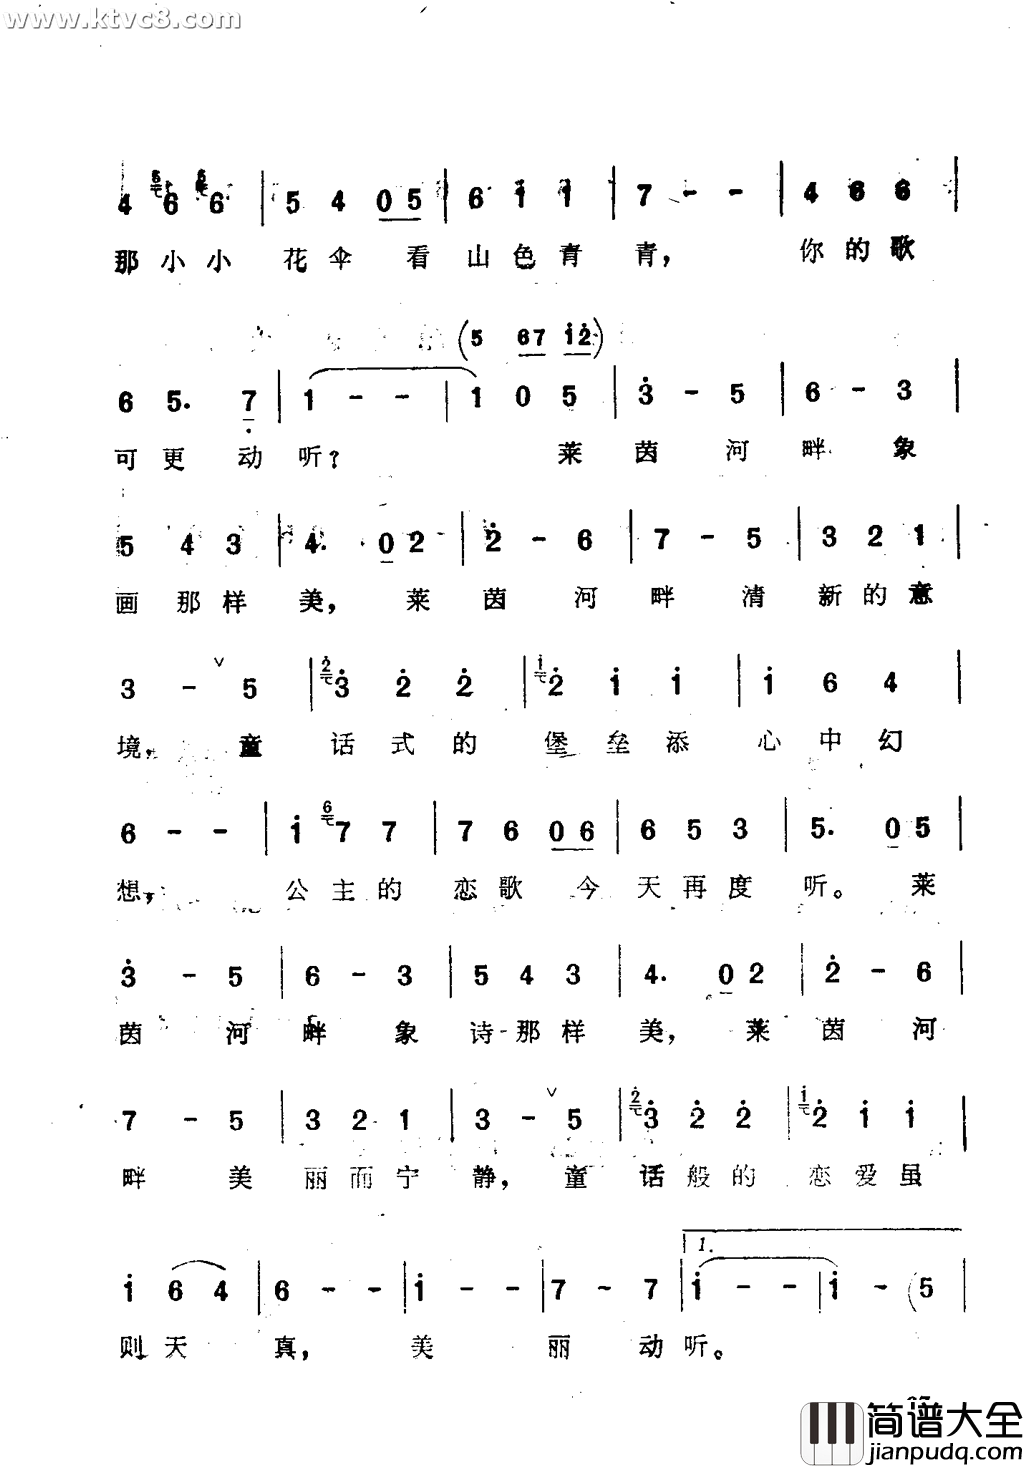 www.ktvc8.com
4 6 6 | 5 4 0 5 | 6 1 1 | 7 - - | 4 6 6 |
那小小 花伞 看山色青 青， 你的歌
(5 67 i2)
6 5. 7 | 1 - - | 1 0 5 | 3 - 5 | 6 - 3 |
可更 动听？ 莱茵河畔象
5 4 3 | 4. 0 2 | 2 - 6 | 7 - 5 | 3 2 1 |
画那样 美， 莱茵 河畔 清 新的意
3 - 5 | 3 2 2 | 2 i i | i 6 4 |
境，童 话式的 堡垒添 心中幻
6 - - | i 7 7 | 7 6 0 6 | 6 5 3 | 5. 0 5 |
想， 公主的 恋歌 今 天再度 听。 莱
3 - 5 | 6 - 3 | 5 4 3 | 4. 0 2 | 2 - 6 |
茵 河 畔 象 诗那样 美， 莱 茵 河
7 - 5 | 3 2 1 | 3 - 5 | 3 2 2 | 2 i i |
畔 美 丽而宁 静， 童 话般的 恋爱虽
1.
i 6 4 | 6 - - | i - - | 7 - 7 | i - - | i - (5 |
则天 真， 美 丽 动听。
简谱大全
jianpudq.com